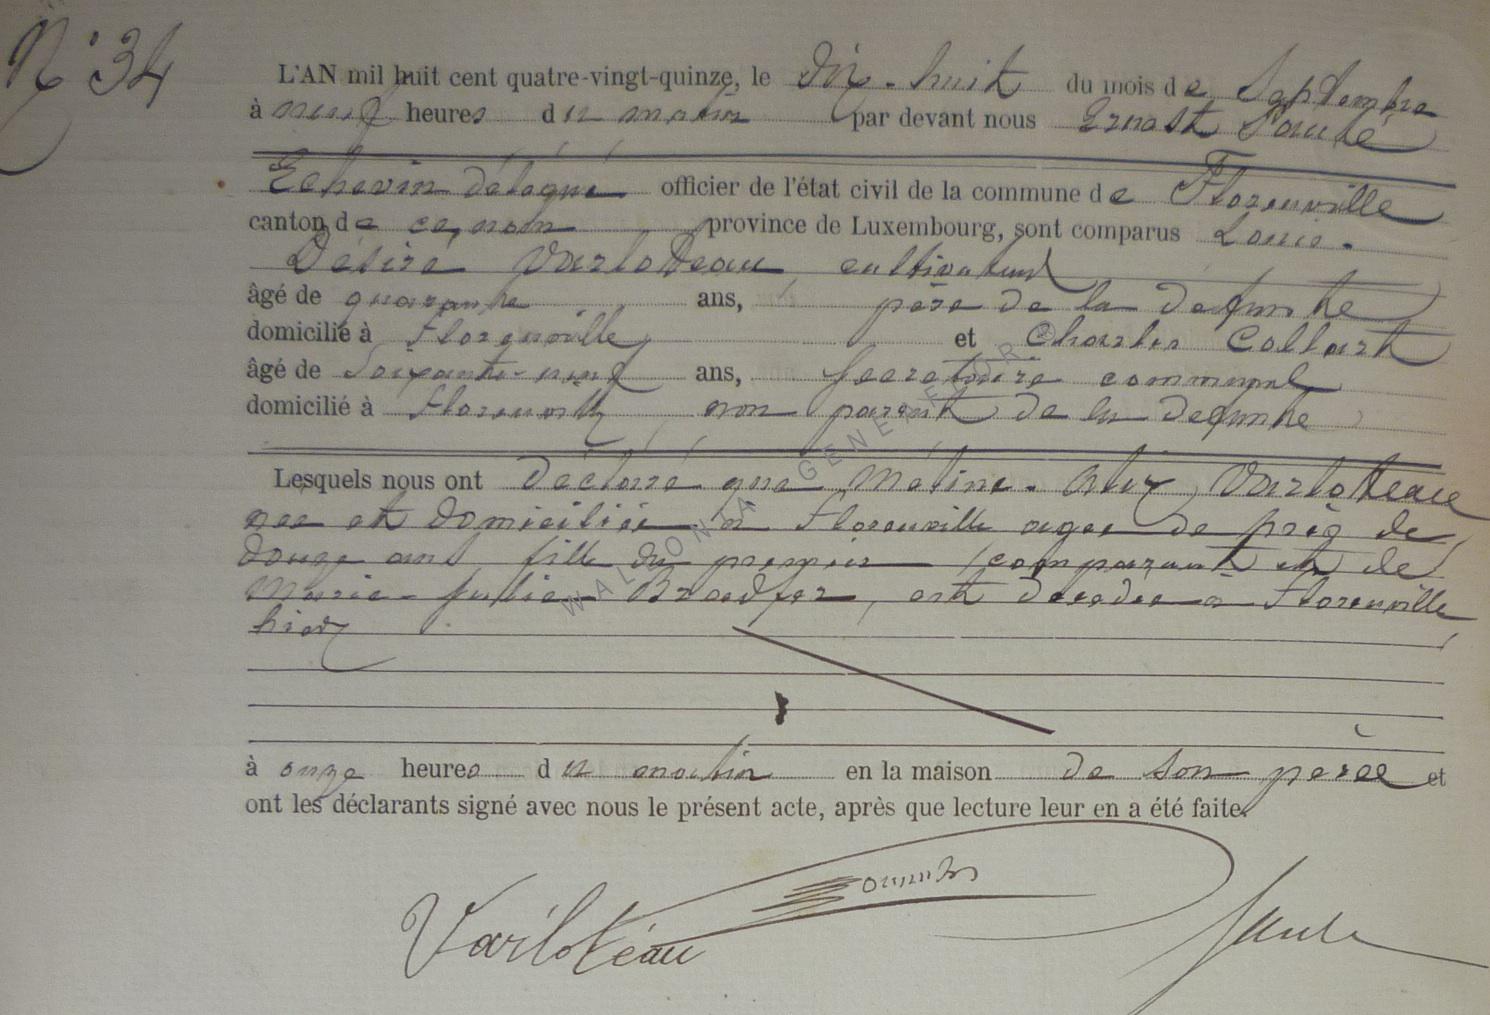 N° 34
L'AN mil huit cent quatre-vingt-quinze, le dix-huit du mois de Septembre
à neuf heures du matin par devant nous Ernest
Echevin délégué officier de l'état civil de la commune de Florenville
canton de ce nom province de Luxembourg, sont comparus Louis-
Désiré Varloteau cultivateur
âgé de quarante ans, père de la defunte
domicilié à Florenville et Charles Collart
âgé de Soixante-neuf ans, Secretaire communal
domicilié à Florenville non parent de la defunte
Lesquels nous ont déclaré que Méline-Alix Varloteau
née et domiciliée à Florenville agee de près de
douze ans fille du premier comparant et de
Marie-Julie Bradfer, est décedée à Florenville
hier
à onze heures du matin en la maison de son père et
ont les déclarants signé avec nous le présent acte, après que lecture leur en a été faite.
Varlotéau
WALLONIA GENEAFLOR